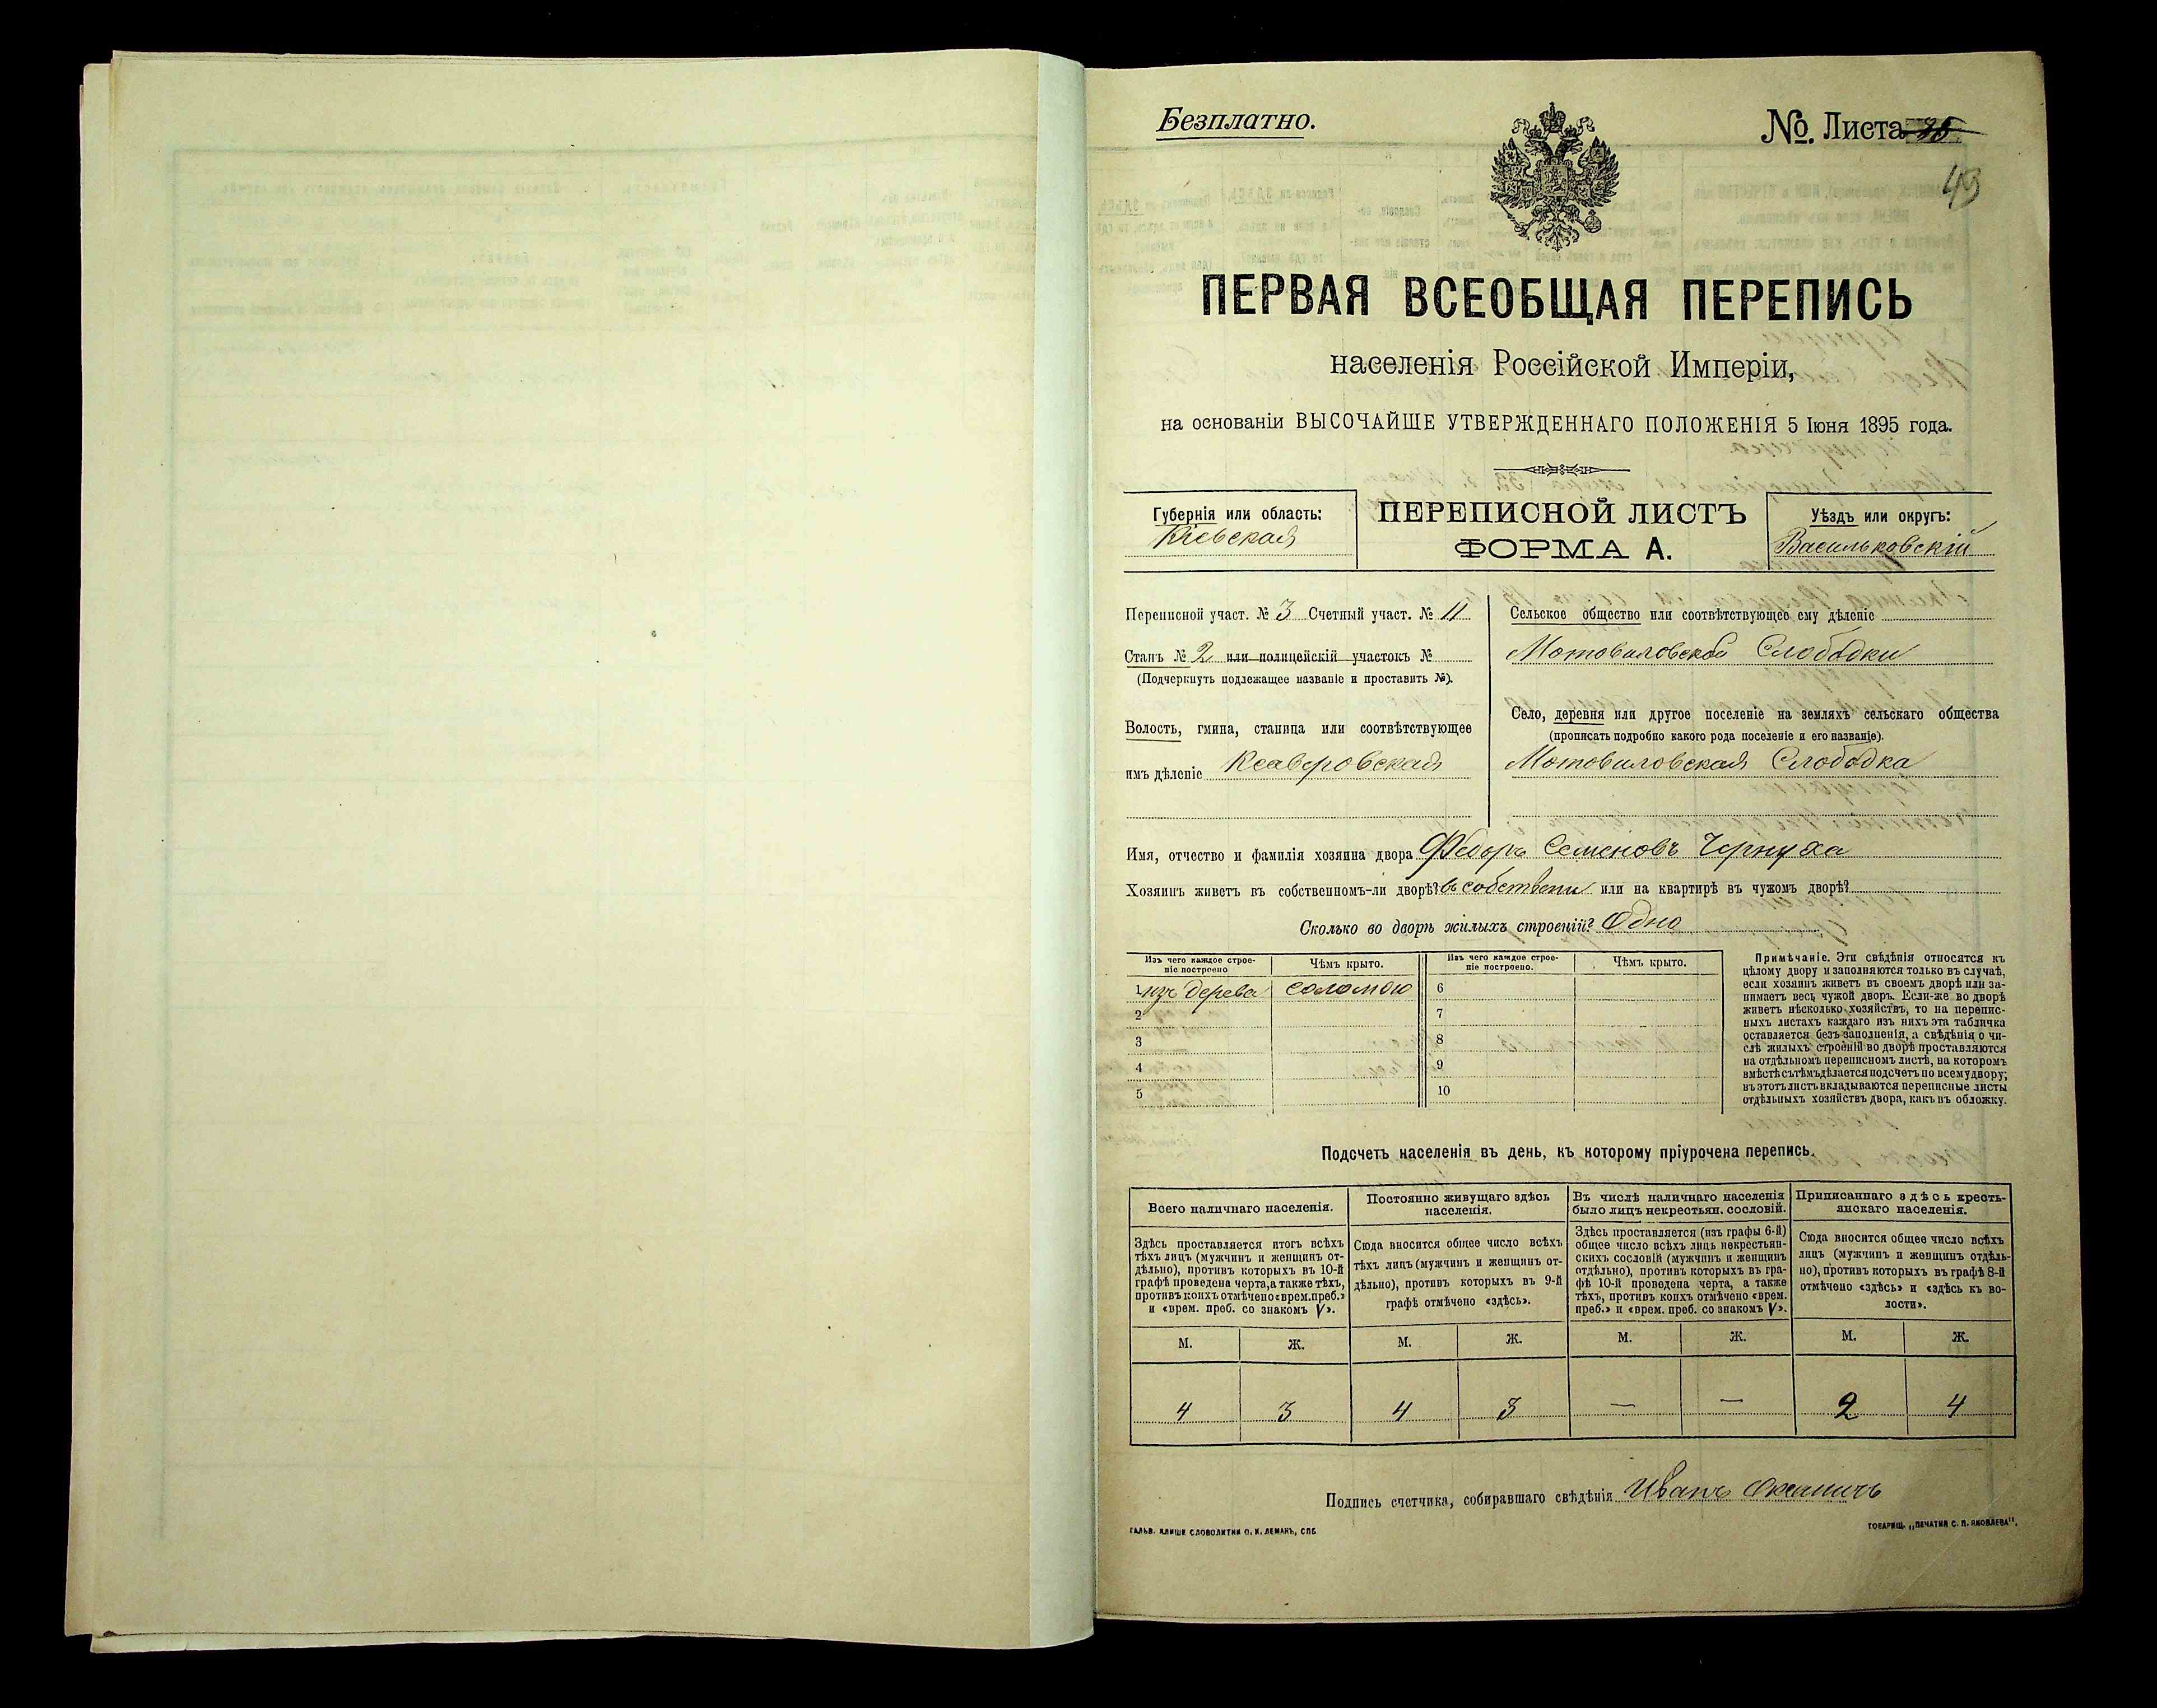 Безплатно.
№. Листа 25
49
ПЕРВАЯ ВСЕОБЩАЯ ПЕРЕПИСЬ
населенія Россійской Имперіи,
на основаніи ВЫСОЧАЙШЕ УТВЕРЖДЕННАГО ПОЛОЖЕНІЯ 5 Іюня 1895 года.
Губернія или область:
Кіевская
ПЕРЕПИСНОЙ ЛИСТЪ
ФОРМА А.
Уѣздъ или округъ:
Васильковскій
Переписной участ. № 3 Счетный участ. № 11
Станъ № 2 или полицейскій участокъ №
(Подчеркнуть подлежащее названіе и проставить №).
Волость, гмина, станица или соотвѣтствующее
имъ дѣленіе Ксаверовская
Сельское общество или соотвѣтствующее ему дѣленіе
Мотовиловской Слободки
Село, деревня или другое поселеніе на земляхъ сельскаго общества
(прописать подробно какого рода поселеніе и его названіе).
Мотовиловская Слободка
Имя, отчество и фамилія хозяина двора Федоръ Семеновъ Чернуха
Хозяинъ живетъ въ собственномъ-ли дворѣ? въ собствени или на квартирѣ въ чужомъ дворѣ?
Сколько во дворѣ жилыхъ строеній? Одно
Изъ чего каждое строе-
ніе построено
Чѣмъ крыто.
Изъ чего каждое строе-
ніе построено.
Чѣмъ крыто.
1 изъ дерева соломою 6
2 7
3 8
4 9
5 10
Примѣчаніе. Эти свѣдѣнія относятся къ
цѣлому двору и заполняются только въ случаѣ,
если хозяинъ живетъ въ своемъ дворѣ или за-
нимаетъ весь чужой дворъ. Если-же во дворѣ
живетъ нѣсколько хозяйствъ, то на перепис-
ныхъ листахъ каждаго изъ нихъ эта табличка
оставляется безъ заполненія, а свѣдѣнія о чи-
слѣ жилыхъ строеній во дворѣ проставляются
на отдѣльномъ переписномъ листѣ, на которомъ
вмѣстѣ съ тѣмъ дѣлается подсчетъ по всему двору;
въ этотъ листъ вкладываются переписные листы
отдѣльныхъ хозяйствъ двора, какъ въ обложку.
Подсчетъ населенія въ день, къ которому пріурочена перепись.
Всего наличнаго населенія.
Здѣсь проставляется итогъ всѣхъ
тѣхъ лицъ (мужчинъ и женщинъ от-
дѣльно), противъ которыхъ въ 10-й
графѣ проведена черта, а также тѣхъ,
противъ коихъ отмѣчено «врем. преб.»
и «врем. преб. со знакомъ V».
Постоянно живущаго здѣсь
населенія.
Сюда вносится общее число всѣхъ
тѣхъ лицъ (мужчинъ и женщинъ от-
дѣльно), противъ которыхъ въ 9-й
графѣ отмѣчено «здѣсь».
Въ числѣ наличнаго населенія
было лицъ некрестьян. сословій.
Здѣсь проставляется (изъ графы 6-й)
общее число всѣхъ лицъ некрестьян-
скихъ сословій (мужчинъ и женщинъ
отдѣльно), противъ которыхъ въ гра-
фѣ 10-й проведена черта, а также
тѣхъ, противъ коихъ отмѣчено «врем.
преб.» и «врем. преб. со знакомъ V».
Приписаннаго здѣсь кресть-
янскаго населенія.
Сюда вносится общее число всѣхъ
лицъ (мужчинъ и женщинъ отдѣль-
но), противъ которыхъ въ графѣ 8-й
отмѣчено «здѣсь» и «здѣсь къ во-
лости».
М. Ж. М. Ж. М. Ж. М. Ж.
4 3 4 3 — — 2 4
Подпись счетчика, собиравшаго свѣдѣнія Иванъ
ГАЛЬВ. КЛИШИ СЛОВОЛИТНИ О. И. ЛЕМАНЪ, СПБ.
ТОВАРИЩ. „ПЕЧАТНЯ С. П. ЯКОВЛЕВА".